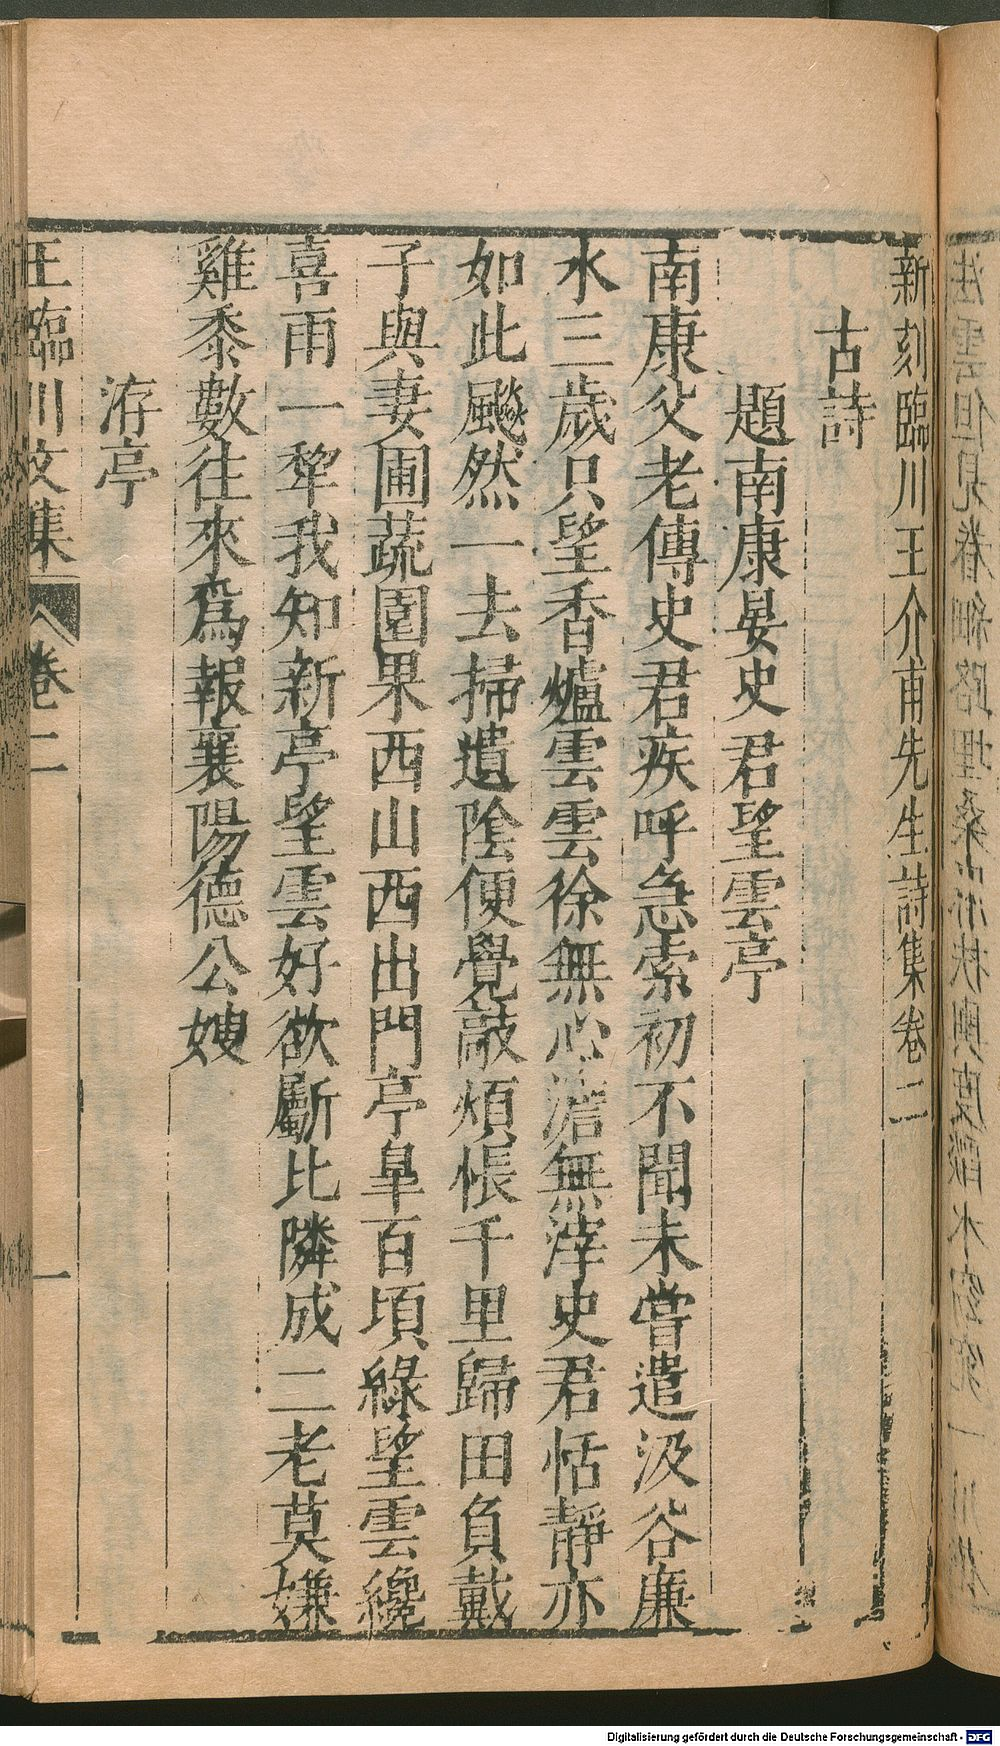 新刻臨川王介甫先生詩集卷二
古詩
題南康晏史君望雲亭
南康父老傳史君疾呼急索初不聞未嘗遣汲谷廉
水三歲只望香爐雲雲徐無心澹無滓史君恬靜亦
如此飈然一去掃遺陰便覺敲煩悵千里歸田負戴
子與妻圃蔬園果西山西出門亭皐百頃綠望雲纔
喜雨一犂我知新亭望雲好欲斸比隣成二老莫嫌
雞黍數往來爲報襄陽德公嫂
洊亭
王臨川文集 卷二 一
Digitalisierung gefördert durch die Deutsche Forschungsgemeinschaft - DFG